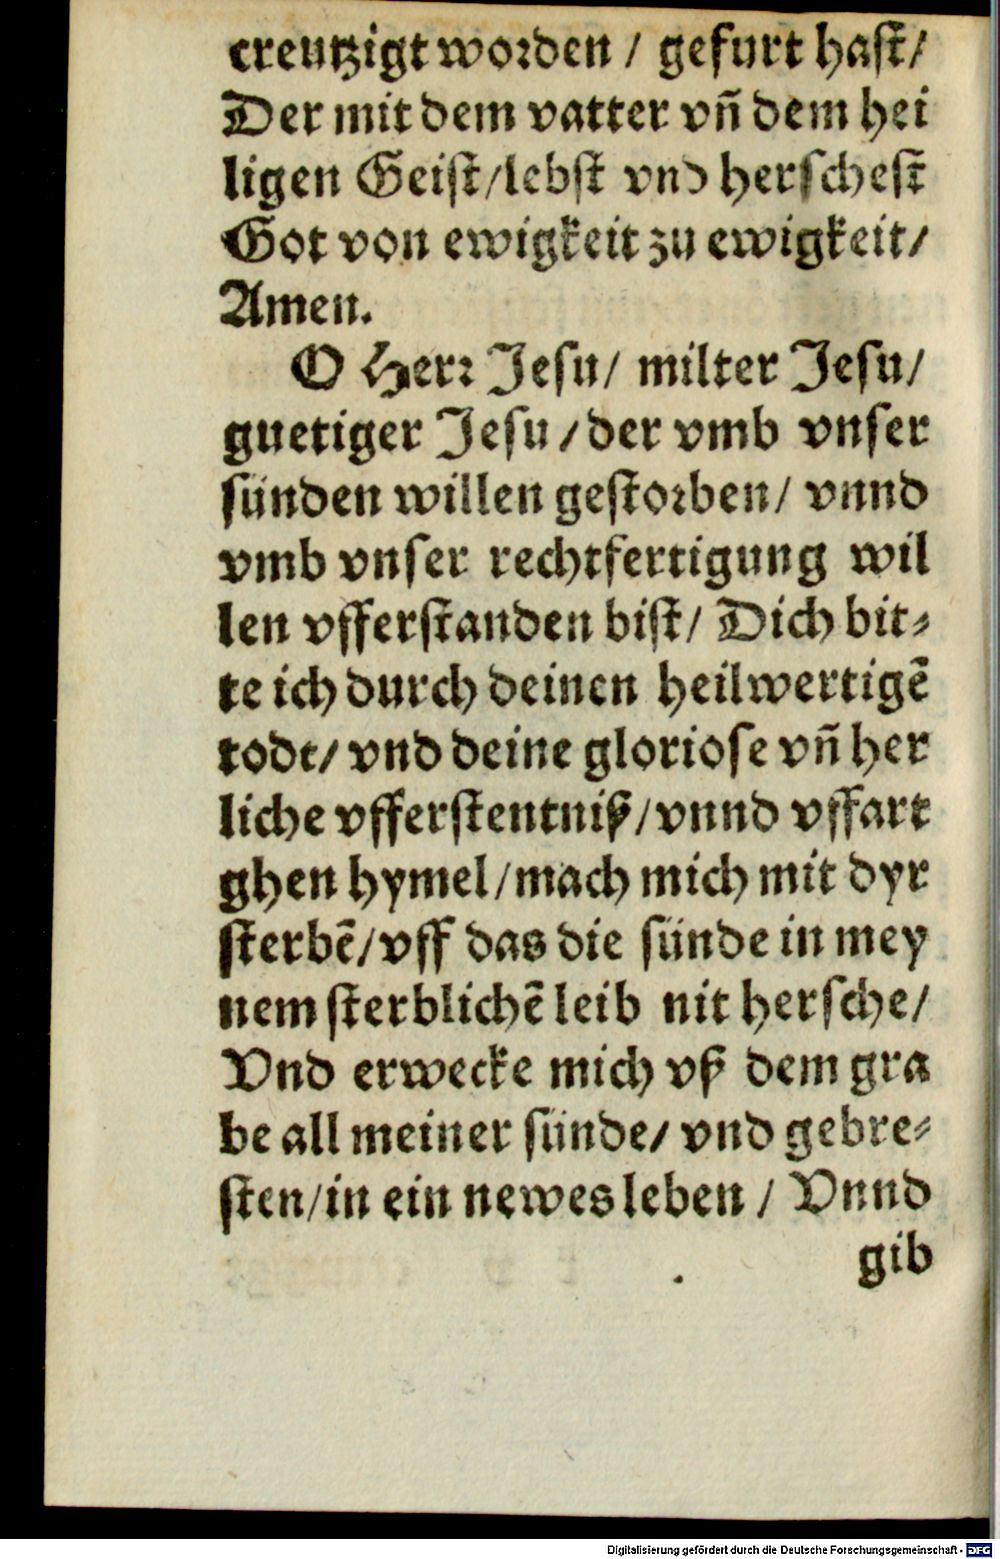 creutzigt worden / gefurt hast/
Der mit dem vatter vñ dem hei
ligen Geist/lebst vnd herschest
Got von ewigkeit zu ewigkeit/
Amen.
O Herr Jesu/ milter Jesu/
guetiger Jesu /der vmb vnser
sünden willen gestorben/ vnnd
vmb vnser rechtfertigung wil
len vfferstanden bist/ Dich bit⸗
te ich durch deinen heilwertigē
todt/ vnd deine gloriose vñ her
liche vfferstentniß/vnnd vffart
ghen hymel/mach mich mit dyr
sterbē/vff das die sünde in mey
nem sterblichē leib nit hersche/
Vnd erwecke mich vß dem gra
be all meiner sünde/ vnd gebre⸗
sten/in ein newes leben / Vnnd
gib
Digitalisierung gefördert durch die Deutsche Forschungsgemeinschaft - DFG